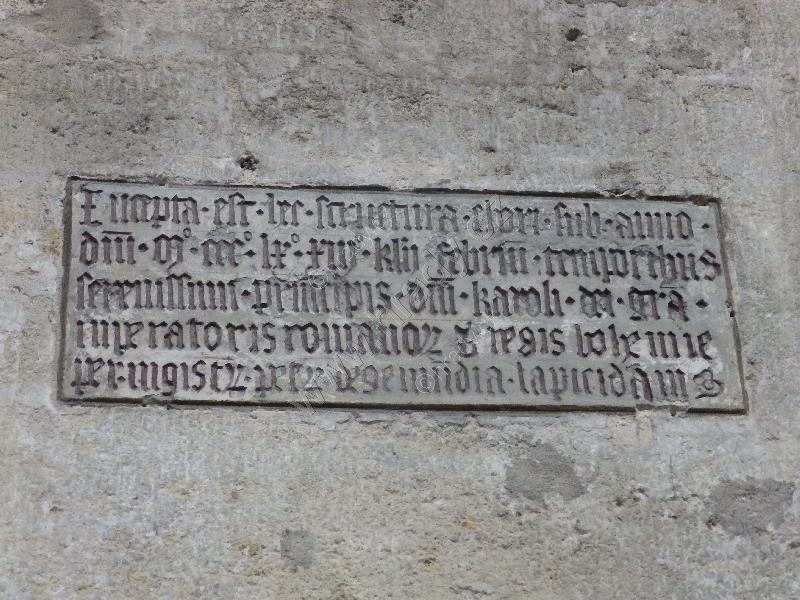 Incepta · est · hec · structura · chori · sub · anno ·
dni · mº · cccº · lxº · xiij · kln · febrm · temporibus
serenissimi · principis · dni · karoli · dei · gra ·
imperatoris romanorꝝ & regis bohemie
per · mgistrꝝ · lapicidam